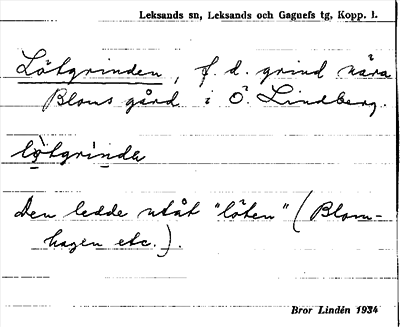 Leksands sn, Leksands och Gagnefs tg, Kopp. l.
Lötgrinden, f. d. grind nära
Bloms gård i Ö. Lindberg.
lötgrinda
Den ledde utåt "löten" (Blom-
hagen etc.).
Bror Lindén 1934